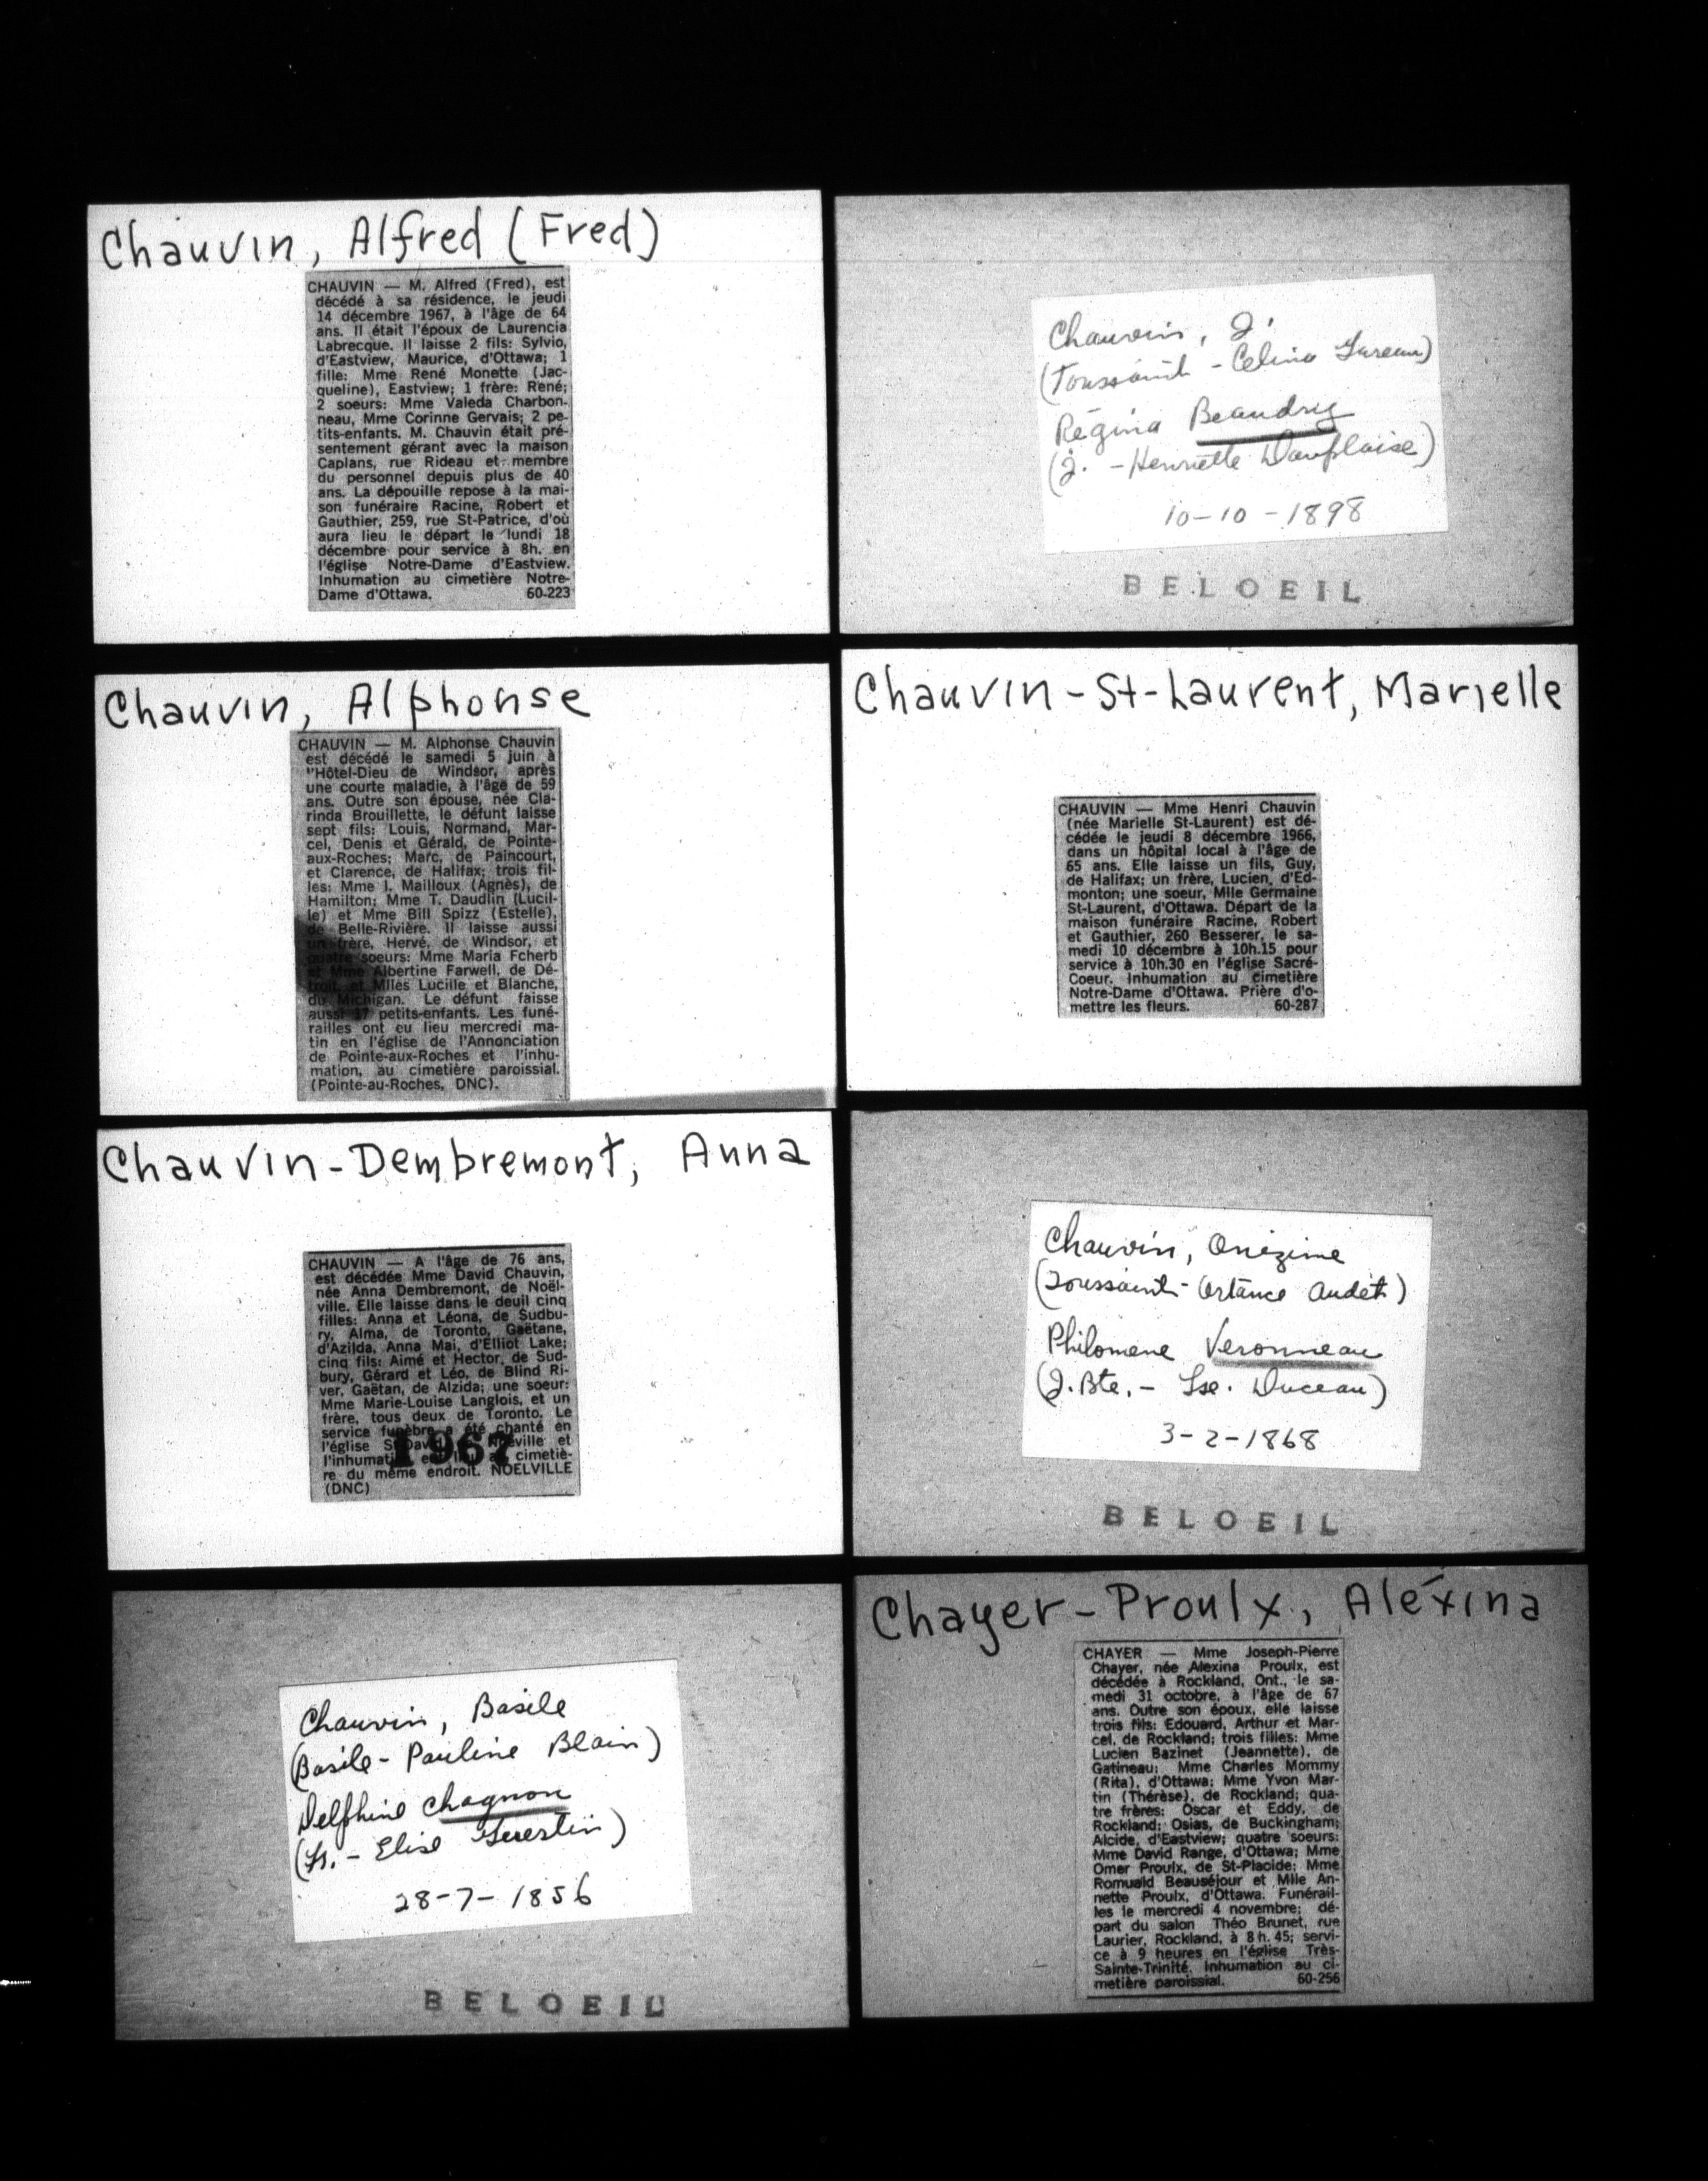 Chauvin, Alfred (Fred)
CHAUVIN — M. Alfred (Fred), est
décédé à sa résidence, le jeudi
14 décembre 1967, à l'âge de 64
ans. Il était l'époux de Laurencia
Labrecque. Il laisse 2 fils: Sylvio,
d'Eastview, Maurice, d'Ottawa; 1
fille: Mme René Monette (Jac-
queline), Eastview; 1 frère: René;
2 soeurs: Mme Valeda Charbon-
neau, Mme Corinne Gervais; 2 pe-
tits-enfants. M. Chauvin était pré-
sentement gérant avec la maison
Caplans, rue Rideau et membre
du personnel depuis plus de 40
ans. La dépouille repose à la mai-
son funéraire Racine, Robert et
Gauthier, 259, rue St-Patrice, d'où
aura lieu le départ le lundi 18
décembre pour service à 8h. en
l'église Notre-Dame d'Eastview.
Inhumation au cimetière Notre-
Dame d'Ottawa. 60-223
Chauvin, J.
(Toussaint - Celina
Régina Beaudry
(J. - Henriette Dauplaise)
10-10-1898
BELOEIL
Chauvin, Alphonse
CHAUVIN — M. Alphonse Chauvin
est décédé le samedi 5 juin à
l'Hôtel-Dieu de Windsor, après
une courte maladie, à l'âge de 59
ans. Outre son épouse, née Cla-
rinda Brouillette, le défunt laisse
sept fils: Louis, Normand, Mar-
cel, Denis et Gérald, de Pointe-
aux-Roches; Marc, de Paincourt,
et Clarence, de Halifax; trois fil-
les: Mme I. Mailloux (Agnès), de
Hamilton; Mme T. Daudlin (Lucil-
le) et Mme Bill Spizz (Estelle),
de Belle-Rivière. Il laisse aussi
un frère, Hervé, de Windsor, et
quatre soeurs: Mme Maria Fcherb
et Mme Albertine Farwell, de Dé-
troit, et Mlles Lucille et Blanche,
du Michigan. Le défunt faisse
aussi 17 petits-enfants. Les funé-
railles ont eu lieu mercredi ma-
tin en l'église de l'Annonciation
de Pointe-aux-Roches et l'inhu-
mation, au cimetière paroissial.
(Pointe-au-Roches, DNC).
Chauvin-St-Laurent, Marielle
CHAUVIN — Mme Henri Chauvin
(née Marielle St-Laurent) est dé-
cédée le jeudi 8 décembre 1966,
dans un hôpital local à l'âge de
65 ans. Elle laisse un fils, Guy,
de Halifax; un frère, Lucien, d'Ed-
monton; une soeur, Mlle Germaine
St-Laurent, d'Ottawa. Départ de la
maison funéraire Racine, Robert
et Gauthier, 260 Besserer, le sa-
medi 10 décembre à 10h.15 pour
service à 10h.30 en l'église Sacré-
Coeur. Inhumation au cimetière
Notre-Dame d'Ottawa. Prière d'o-
mettre les fleurs. 60-287
Chauvin-Dembremont, Anna
CHAUVIN — A l'âge de 76 ans,
est décédée Mme David Chauvin,
née Anna Dembremont, de Noël-
ville. Elle laisse dans le deuil cinq
filles: Anna et Léona, de Sudbu-
ry, Alma, de Toronto, Gaëtane,
d'Azilda, Anna Mai, d'Elliot Lake;
cinq fils: Aimé et Hector, de Sud-
bury, Gérard et Léo, de Blind Ri-
ver, Gaëtan, de Alzida; une soeur:
Mme Marie-Louise Langlois, et un
frère, tous deux de Toronto. Le
service funèbre a été chanté en
l'église et
cimetiè-
re du même endroit. NOELVILLE
(DNC)
1967
Chauvin, Onézime
(Toussaint - Ortance Audet)
Philomene Veronneau
(J. Bte. - Lse. Duceau)
3-2-1868
BELOEIL
Chauvin, Basile
(Basile - Pauline Blain)
Delphine Chagnon
- Elise
28-7-1856
BELOEIL
Chayer-Proulx, Aléxina
CHAYER — Mme Joseph-Pierre
Chayer, née Alexina Proulx, est
décédée à Rockland, Ont., le sa-
medi 31 octobre, à l'âge de 67
ans. Outre son époux, elle laisse
trois fils: Edouard, Arthur et Mar-
cel, de Rockland; trois filles: Mme
Lucien Bazinet (Jeannette), de
Gatineau; Mme Charles Mommy
(Rita), d'Ottawa; Mme Yvon Mar-
tin (Thérèse), de Rockland; qua-
tre frères: Oscar et Eddy, de
Rockland; Osias, de Buckingham;
Alcide, d'Eastview; quatre soeurs:
Mme David Range, d'Ottawa; Mme
Omer Proulx, de St-Placide; Mme
Romuald Beauséjour et Mlle An-
nette Proulx, d'Ottawa. Funérail-
les le mercredi 4 novembre; dé-
part du salon Théo Brunet, rue
Laurier, Rockland, à 8h.45; servi-
ce à 9 heures en l'église Très-
Sainte-Trinité. Inhumation au ci-
metière paroissial. 60-256